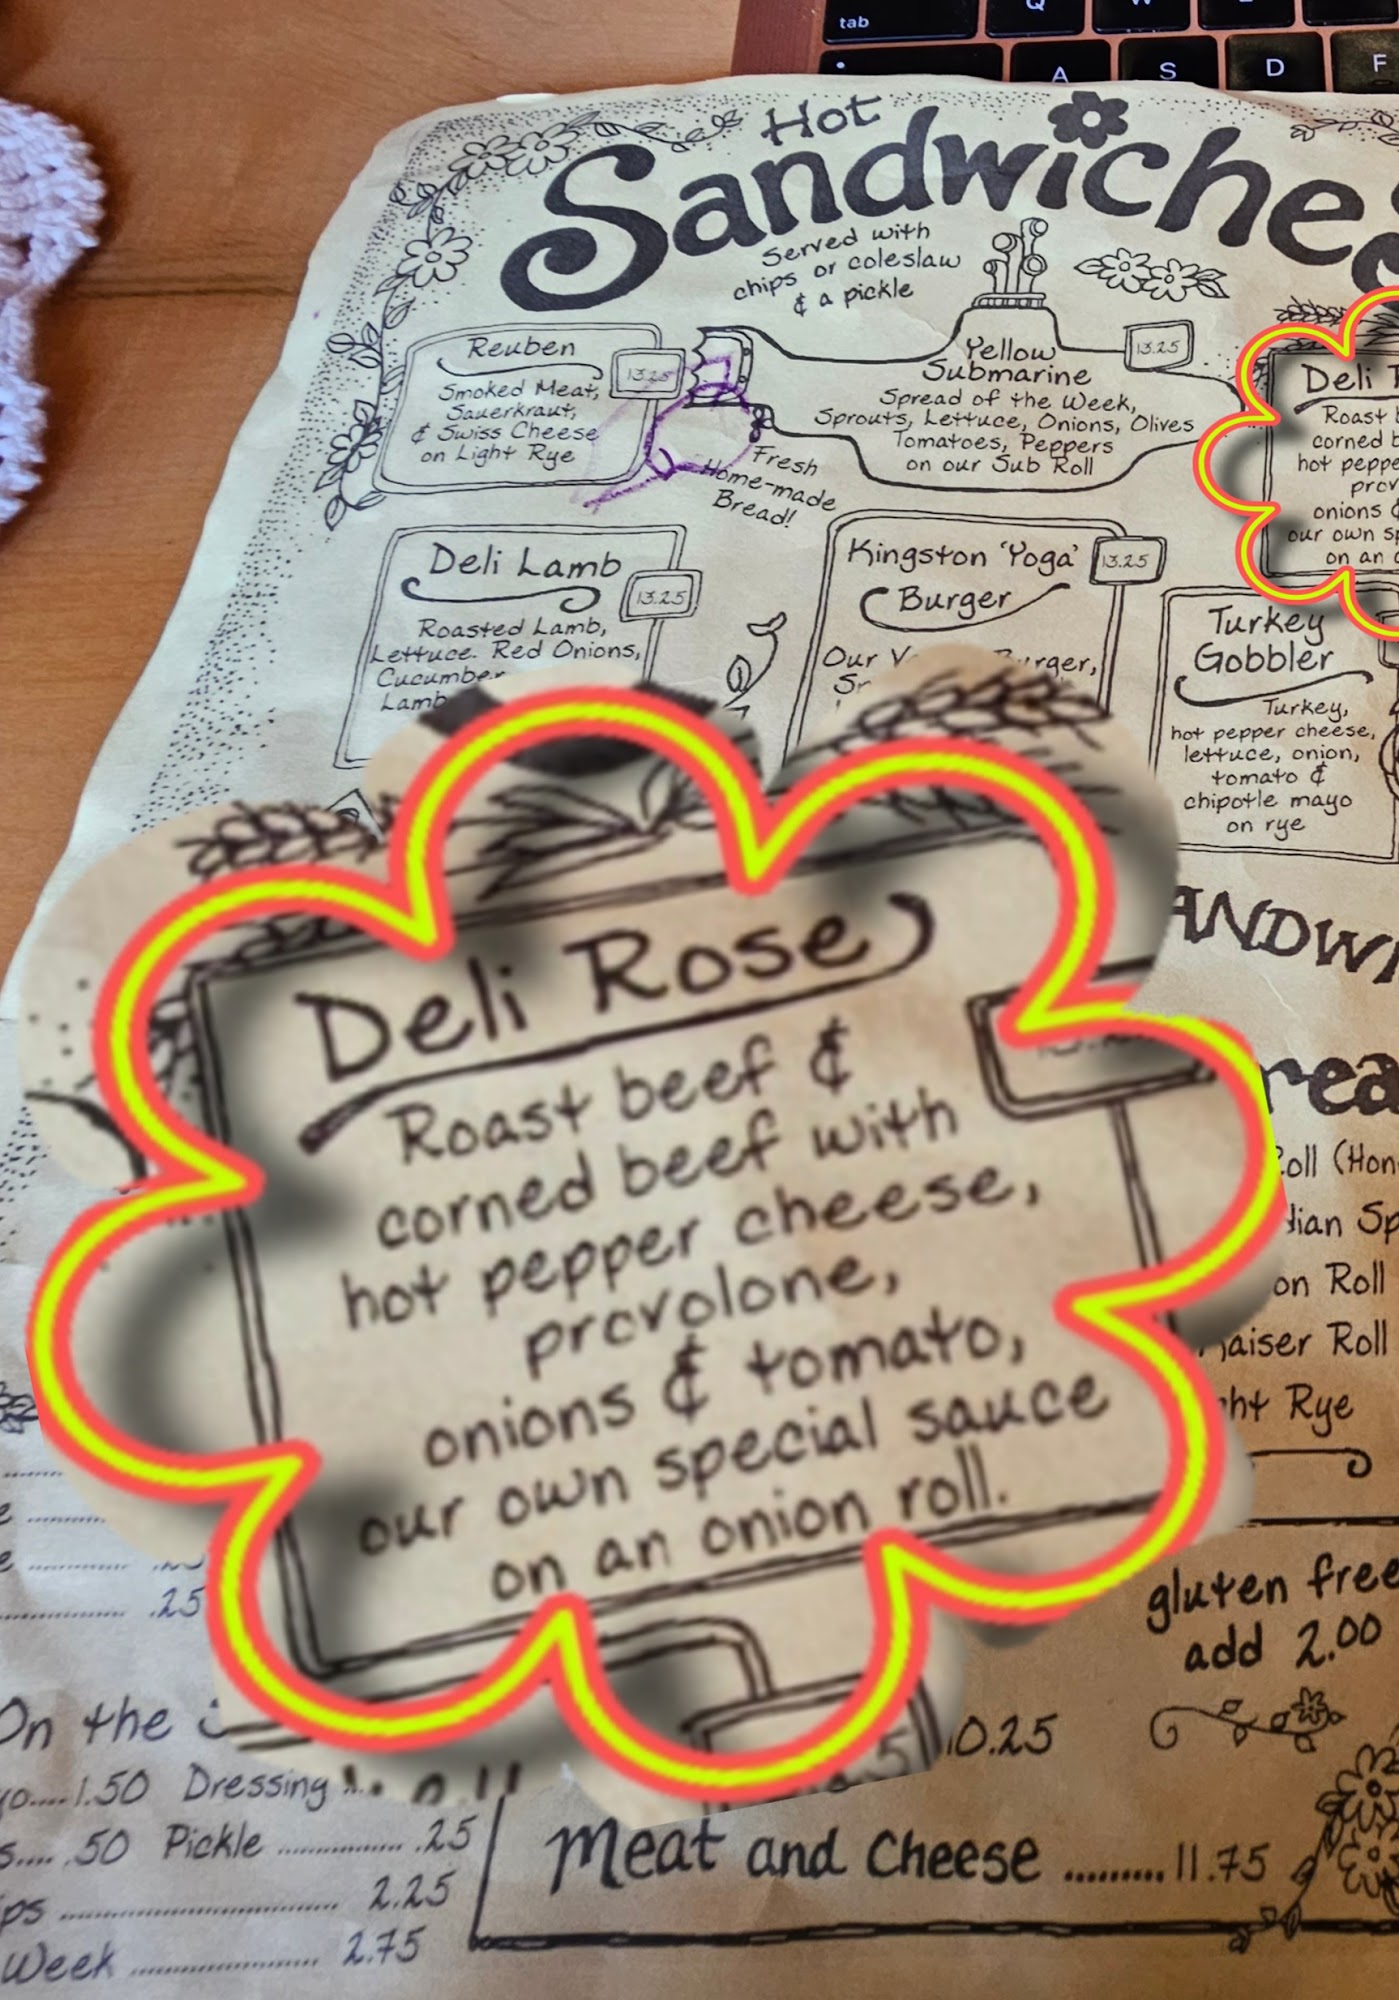 tab
Q
W
A
S
D
F
Hot
Sandwiches
Served with
chips or coleslaw
¢ a pickle
Reuben
13.25
Smoked Meat,
Sauerkraut,
¢ Swiss Cheese
on Light Rye
Yellow
Submarine
13.25
Spread of the Week,
Sprouts, Lettuce, Onions, Olives
Tomatoes, Peppers
on our Sub Roll
Fresh
Home-made
Bread!
Deli
Roast
corned
hot pepper
onions ¢
our own
on an
Deli Lamb
13.25
Roasted Lamb,
Lettuce. Red Onions,
Cucumber
Lamb
Kingston 'Yoga'
Burger
13.25
Our Burger,
Turkey
Gobbler
Turkey,
hot pepper cheese,
lettuce, onion,
tomato ¢
chipotle mayo
on rye
Deli Rose
Roast beef ¢
corned beef with
hot pepper cheese,
provolone,
onions ¢ tomato,
our own special sauce
on an onion roll.
Roll
Roll
Kaiser Roll
Rye
.25
gluten free
add 2.00
10.25
On the
1.50 Dressing
.50 Pickle .............. .25
2.25
Week .................. 2.75
Meat and Cheese ......... 11.75